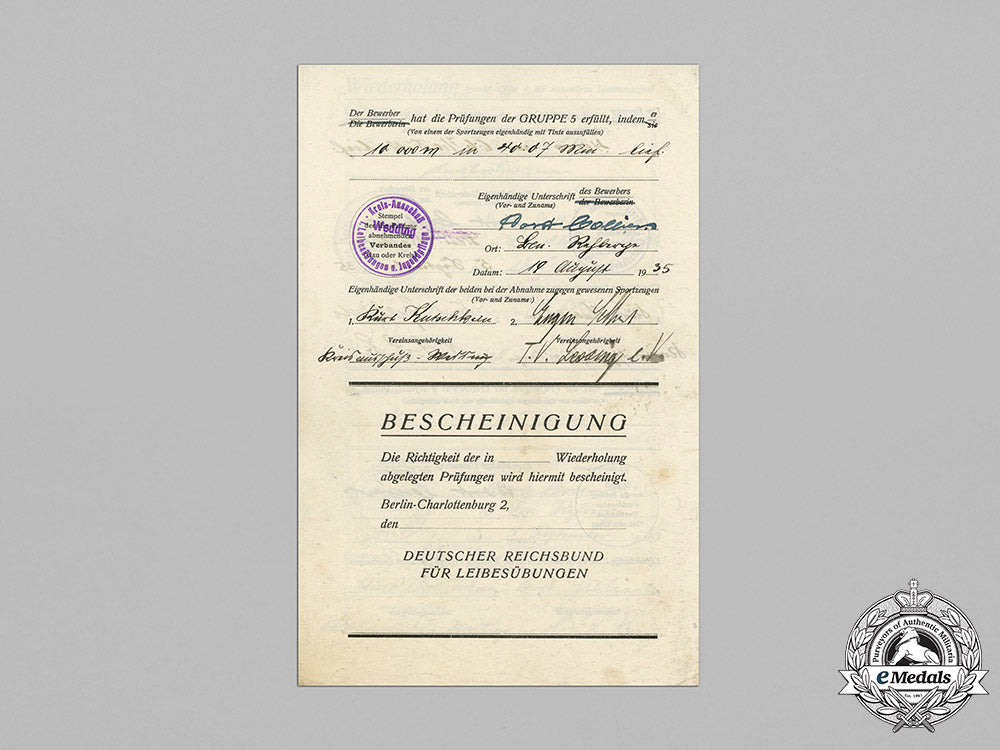 Der Bewerber
Die Bewerberin hat die Prüfungen der GRUPPE 5 erfüllt, indem er
sie
(Von einem der Sportzeugen eigenhändig mit Tinte auszufüllen)
10 000 m in 40:07 Min. lief.
Eigenhändige Unterschrift des Bewerbers
(Vor- und Zuname) der Bewerberin
Kreis-Ausschuß
Stempel
Wedding
abnehmenden
Verbandes
Gau oder Kreis
f. Leibesübungen u. Jugendpflege
Ort: Rehberge
Datum: 19 August 1935
Eigenhändige Unterschrift der beiden bei der Abnahme zugegen gewesenen Sportzeugen
(Vor- und Zuname:)
1. Kurt 2. Eugen
Vereinsangehörigkeit Vereinsangehörigkeit
Kreisausschuß - Wedding T.V.
BESCHEINIGUNG
Die Richtigkeit der in Wiederholung
abgelegten Prüfungen wird hiermit bescheinigt.
Berlin-Charlottenburg 2,
den
DEUTSCHER REICHSBUND
FÜR LEIBESÜBUNGEN
Purveyors of Authentic Militaria
eMedals